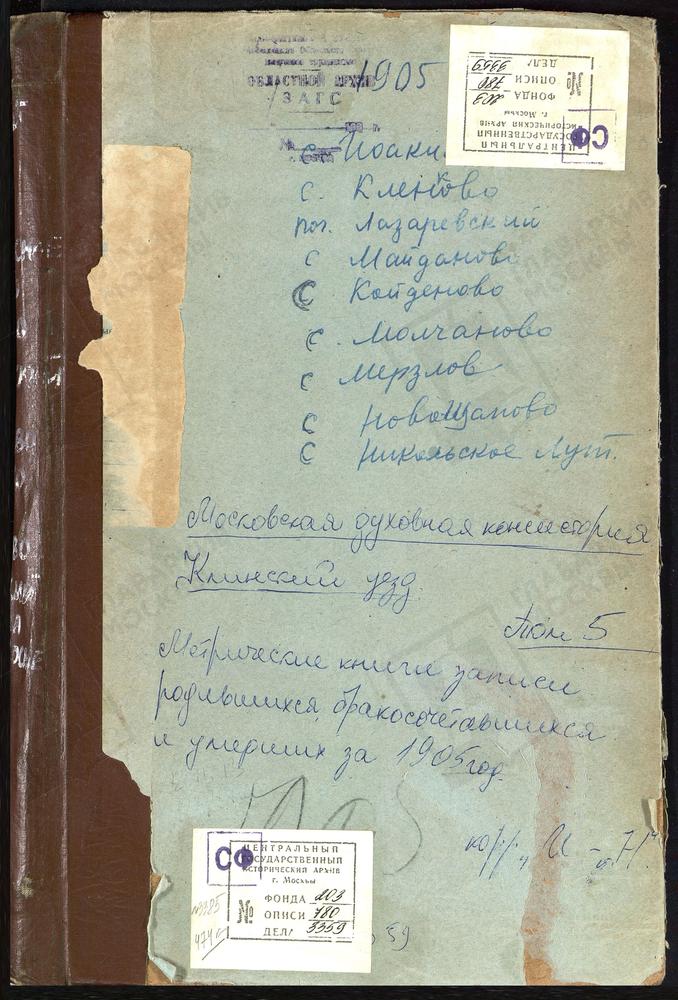 ОБЛАСТНОЙ АРХИВ
ЗАГС
1905
ДЕЛА 3359
№ ОПИСИ 780
ФОНДА 203
г. Москвы
ИСТОРИЧЕСКИЙ АРХИВ
ГОСУДАРСТВЕННЫЙ
ЦЕНТРАЛЬНЫЙ
СФ
с. Иоаки
с. Кленково
пог. Лазаревский
с Майданово
с Койденово
с. Молчаново
с Мерзлов
с Новощапово
с Никольское Лут.
Московская духовная консистория
Клинский уезд
Том 5
Метрические книги записи
родившихся, бракосочетавшихся
и умерших за 1905 год.
1905
СФ
ЦЕНТРАЛЬНЫЙ
ГОСУДАРСТВЕННЫЙ
ИСТОРИЧЕСКИЙ АРХИВ
г. Москвы
№ ФОНДА 203
ОПИСИ 780
ДЕЛА 3359
№3385
59